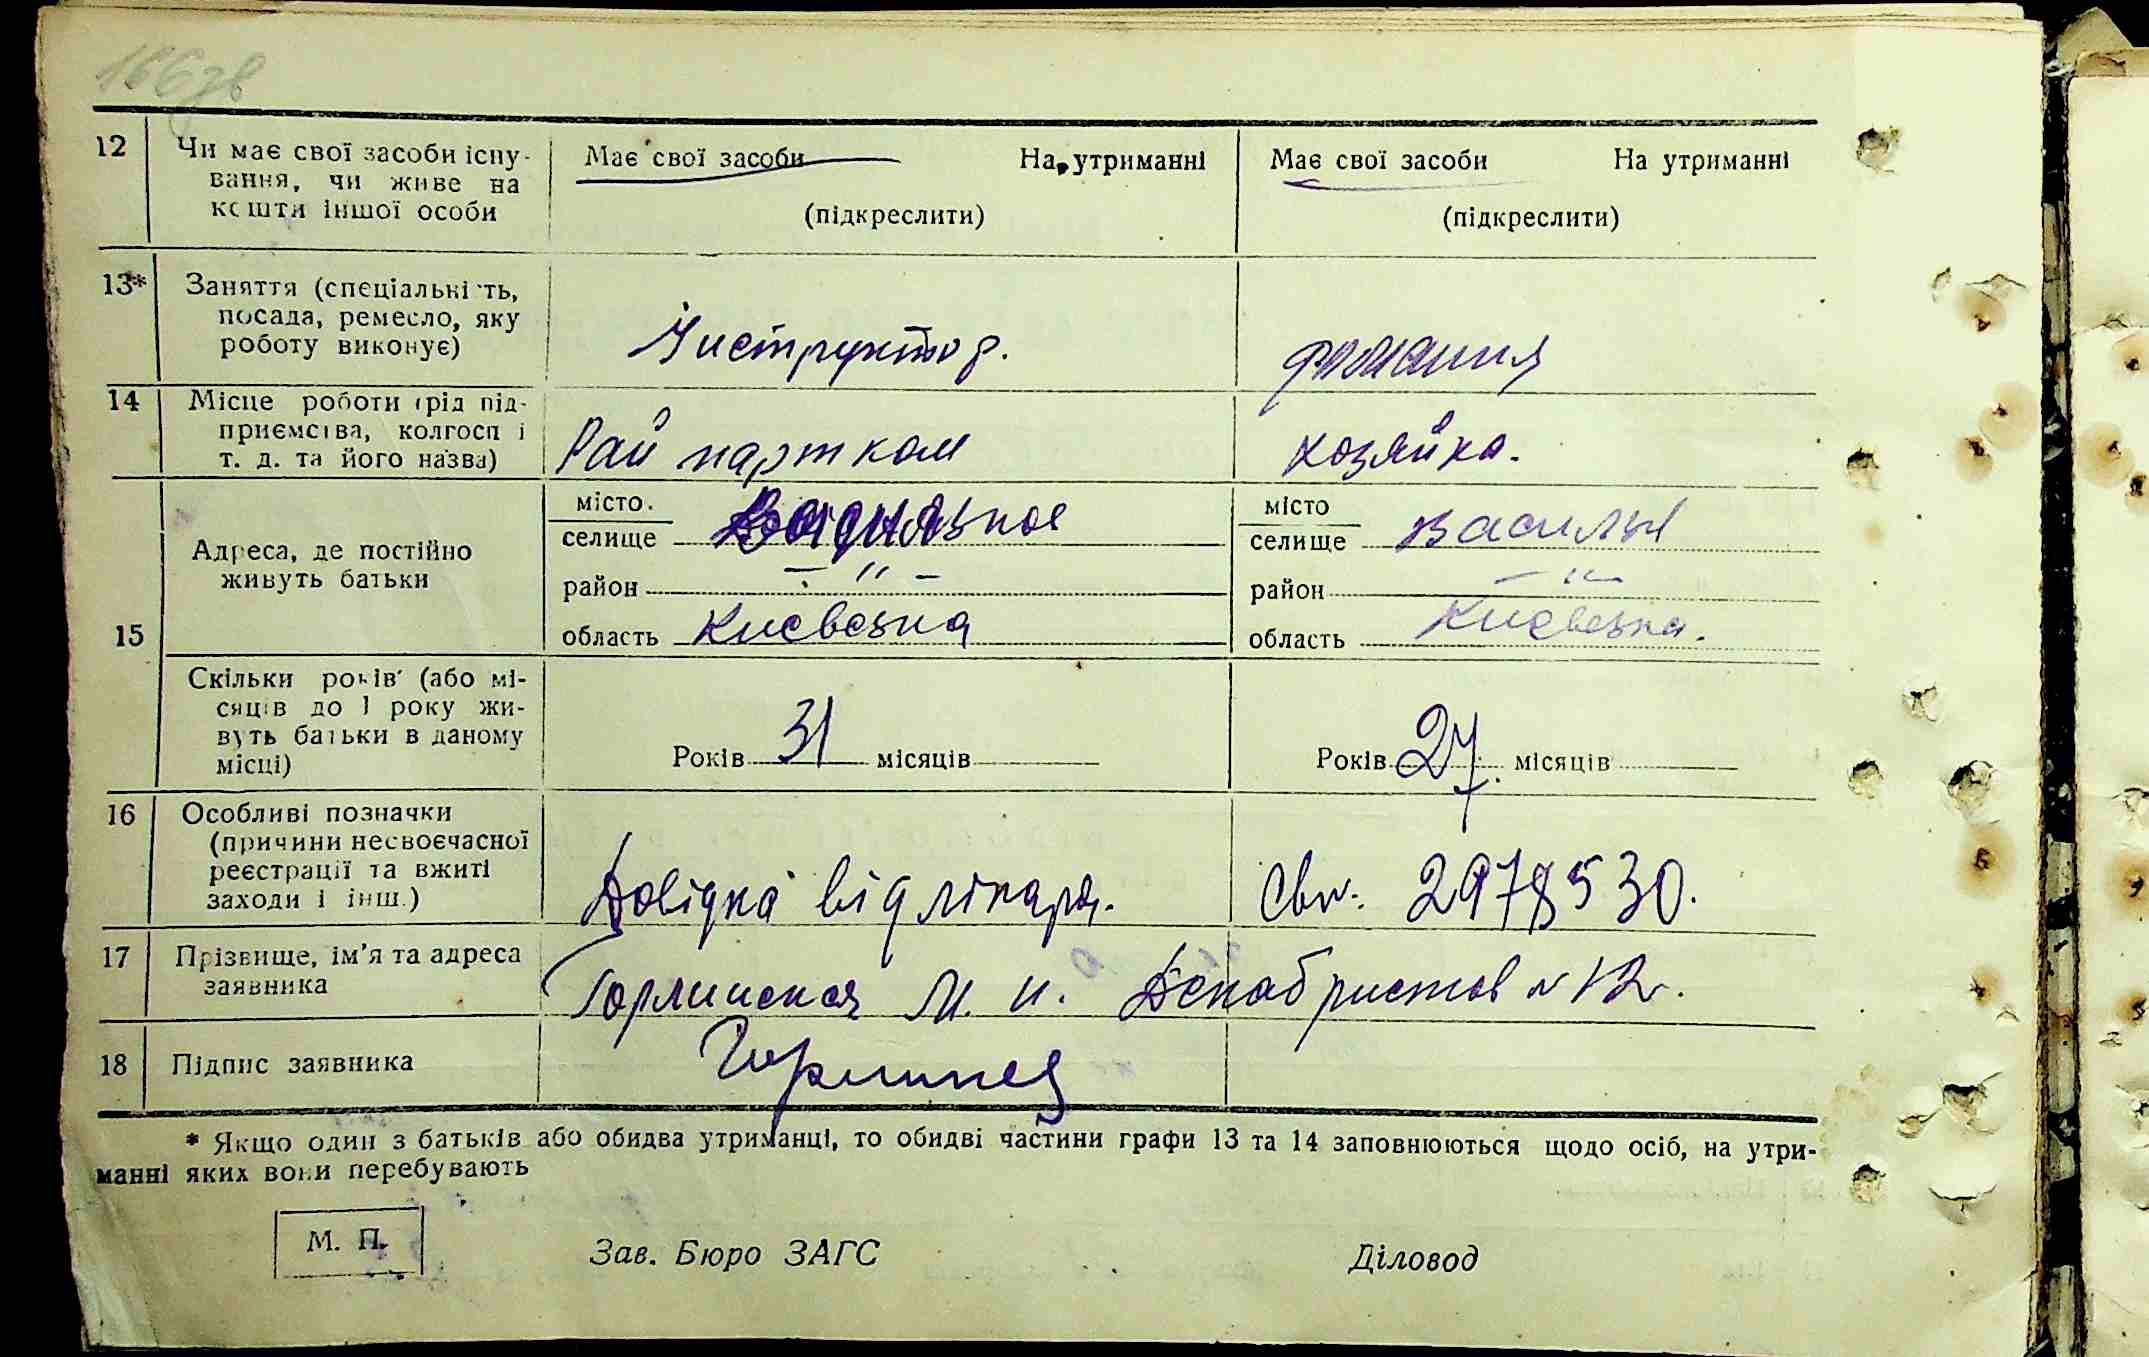 166зв
12 Чи має свої засоби існу- Має свої засоби На утриманні Має свої засоби На утриманні
вання, чи живе на
кошти іншої особи (підкреслити) (підкреслити)
13* Заняття (спеціальність,
посада, ремесло, яку
роботу виконує) Инструктор. домашня
14 Місце роботи (рід під-
приємства, колгосп і
т. д. та його назва) Рай партком хозяйка.
15 Адреса, де постійно
живуть батьки
місто. місто
селище селище Васильк
район — " — район — " —
область Києвська область Киевська.
Скільки років (або мі-
сяців до 1 року жи-
вуть батьки в даному
місці) Років 31 місяців Років 27. місяців
16 Особливі позначки
(причини несвоєчасної
реєстрації та вжиті
заходи і інш.) Довідка від лікаря. Свп. 2978530.
17 Прізвище, ім'я та адреса
заявника Горлинская М. И. Декабристов № 12.
18 Підпис заявника
* Якщо один з батьків або обидва утриманці, то обидві частини графи 13 та 14 заповнюються щодо осіб, на утри-
манні яких вони перебувають
М. П.
Зав. Бюро ЗАГС Діловод